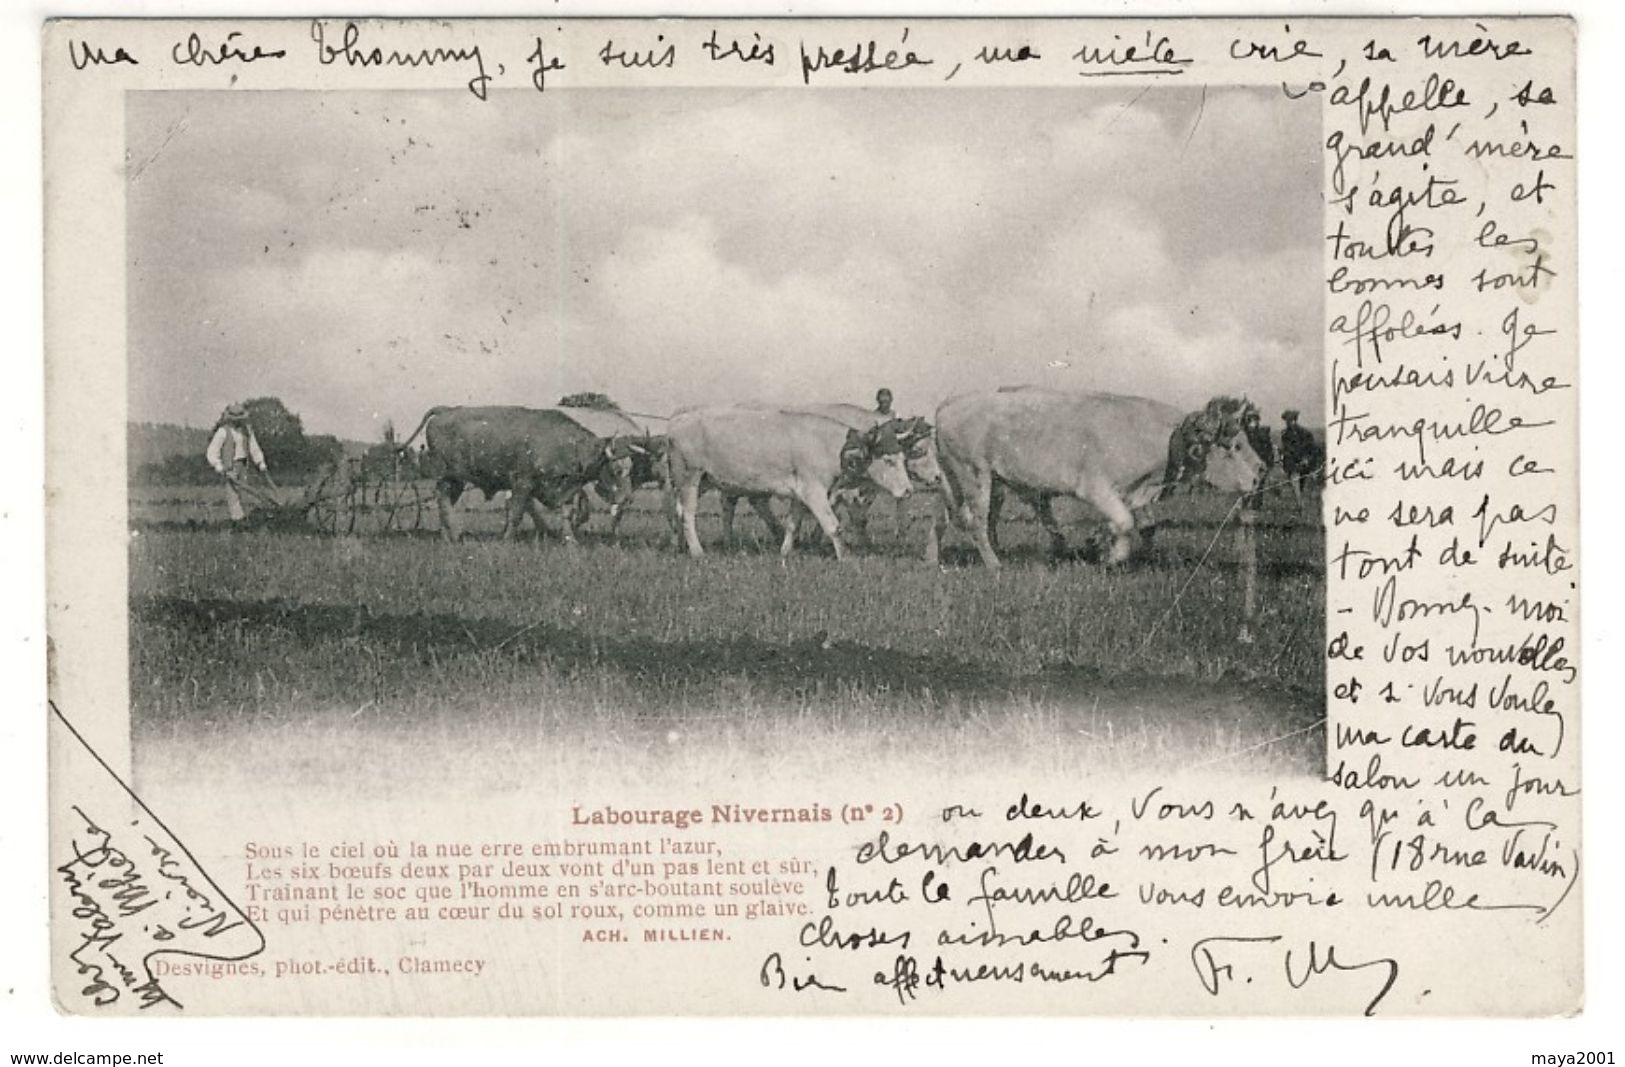 Ma chère Thommy, je suis très pressée, ma nièce crie, sa mère
appelle, sa
grand' mère
s'agite, et
toutes les
bonnes sont
affolées. Je
pensais vivre
tranquille
ici mais ce
ne sera pas
tout de suite
- Donnez-moi
de vos nouvelles
et si vous voulez
ma carte du
salon un jour
ou deux, vous n'avez qu'à la
demander à mon frère (18 rue Vavin)
toute la famille vous envoie mille
choses aimables.
Bien affectueusement F.
Labourage Nivernais (n° 2)
Sous le ciel où la nue erre embrumant l'azur,
Les six bœufs deux par deux vont d'un pas lent et sûr,
Traînant le soc que l'homme en s'arc-boutant soulève
Et qui pénètre au cœur du sol roux, comme un glaive.
ACH. MILLIEN.
Desvignes, phot.-édit., Clamecy
chez
Mme Valery
à
Nièvre.
www.delcampe.net
maya2001